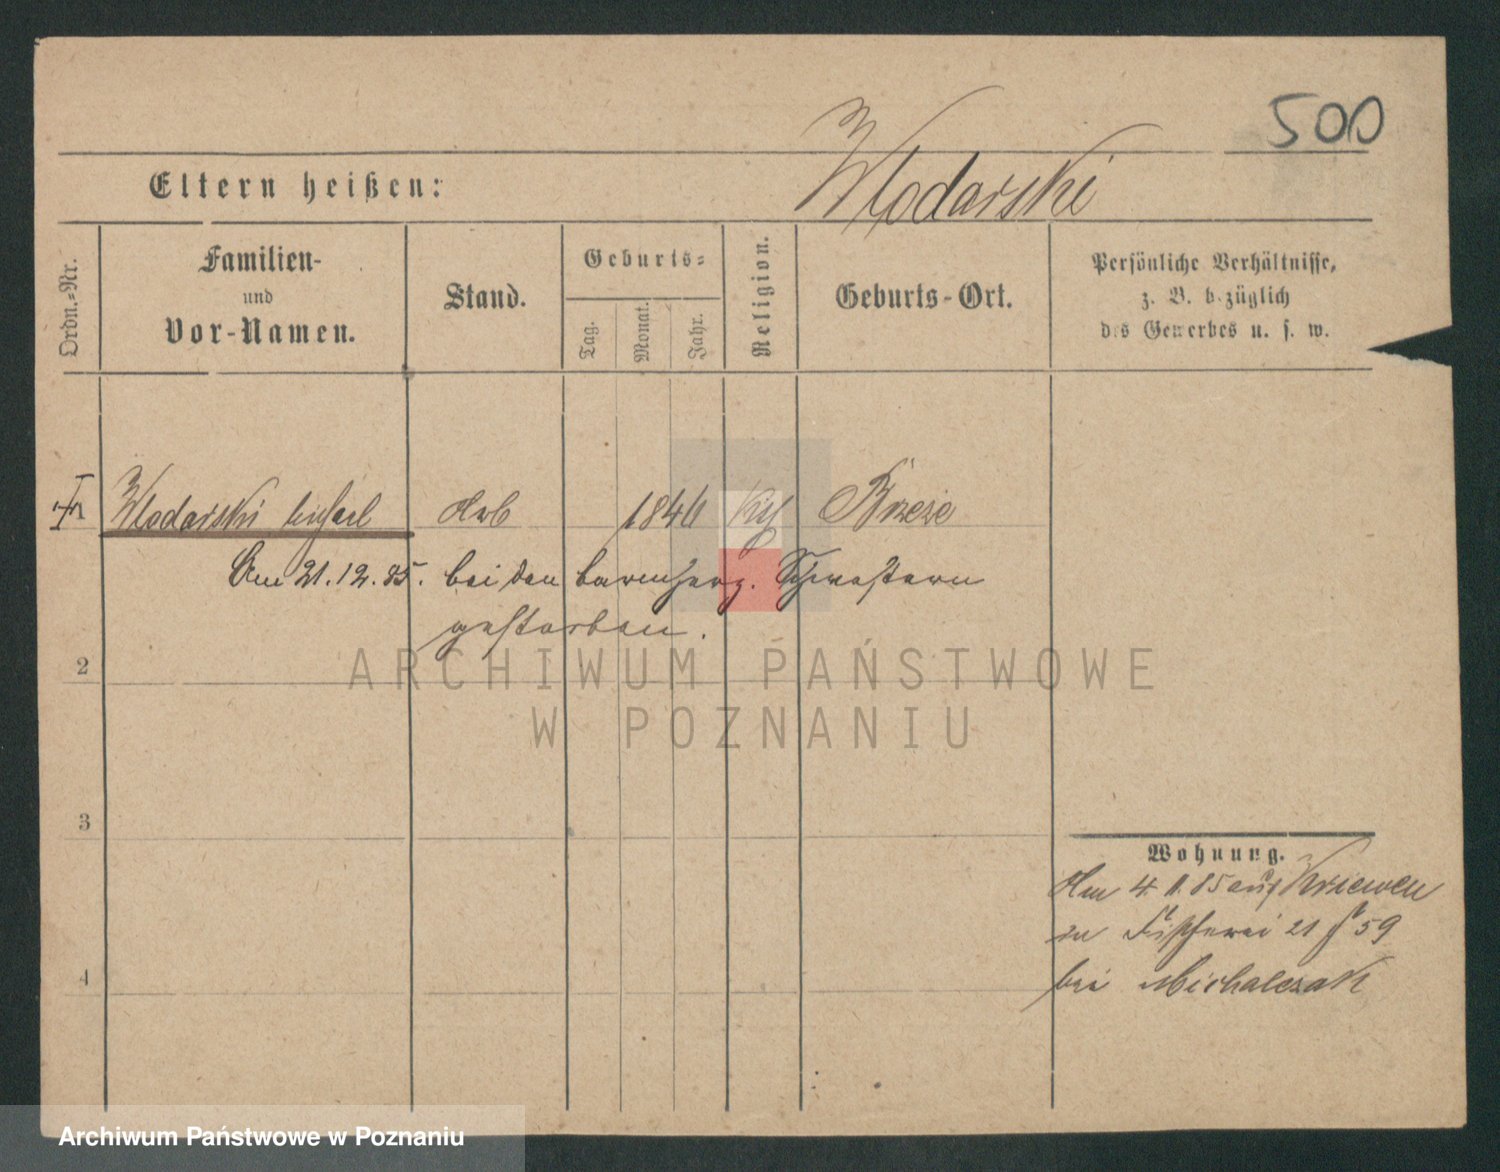 500
Wlodarski
Eltern heißen:
Ordn.=Nr.
Familien-
und
Vor-Namen.
Stand.
Geburts=
Tag.
Monat.
Jahr.
Religion.
Geburts-Ort.
Persönliche Verhältnisse,
z. B. bezüglich
des Gewerbes u. s. w.
1 Wlodarski Michael Arb 1846 kth Brzezie
Am 21.12.85. bei den barmherz. Schwestern
gestorben.
2
3
4
Wohnung.
Am 4.11.85 aus Kriewen
in Fischerei 21 59
bei Michalczak
ARCHIWUM PAŃSTWOWE
W POZNANIU
Archiwum Państwowe w Poznaniu